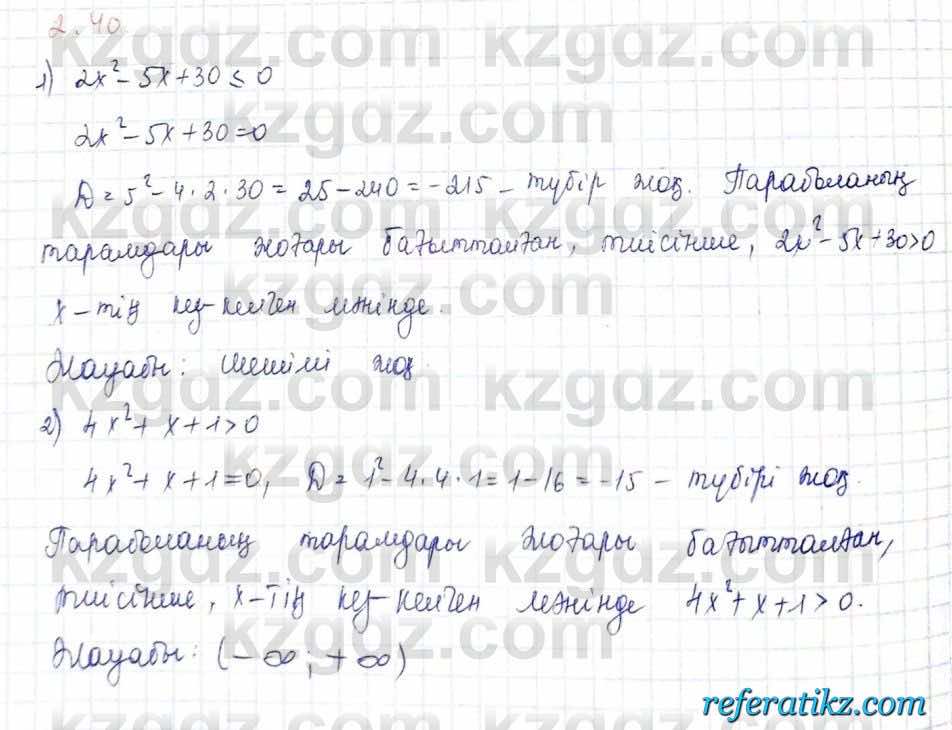 2.40
1) 2x² - 5x + 30 ≤ 0
2x² - 5x + 30 = 0
D = 5² - 4 · 2 · 30 = 25 - 240 = -215 - түбір жоқ. Параболаның
тарамдары жоғары бағытталған, тиісінше, 2x² - 5x + 30 > 0
x - тің кез-келген мәнінде.
Жауабы: шешімі жоқ.
2) 4x² + x + 1 > 0
4x² + x + 1 = 0, D = 1² - 4 · 4 · 1 = 1 - 16 = -15 - түбірі жоқ.
Параболаның тарамдары жоғары бағытталған,
тиісінше, x-тің кез-келген мәнінде 4x² + x + 1 > 0.
Жауабы: (-∞; +∞)
kzgdz.com
referatikz.com